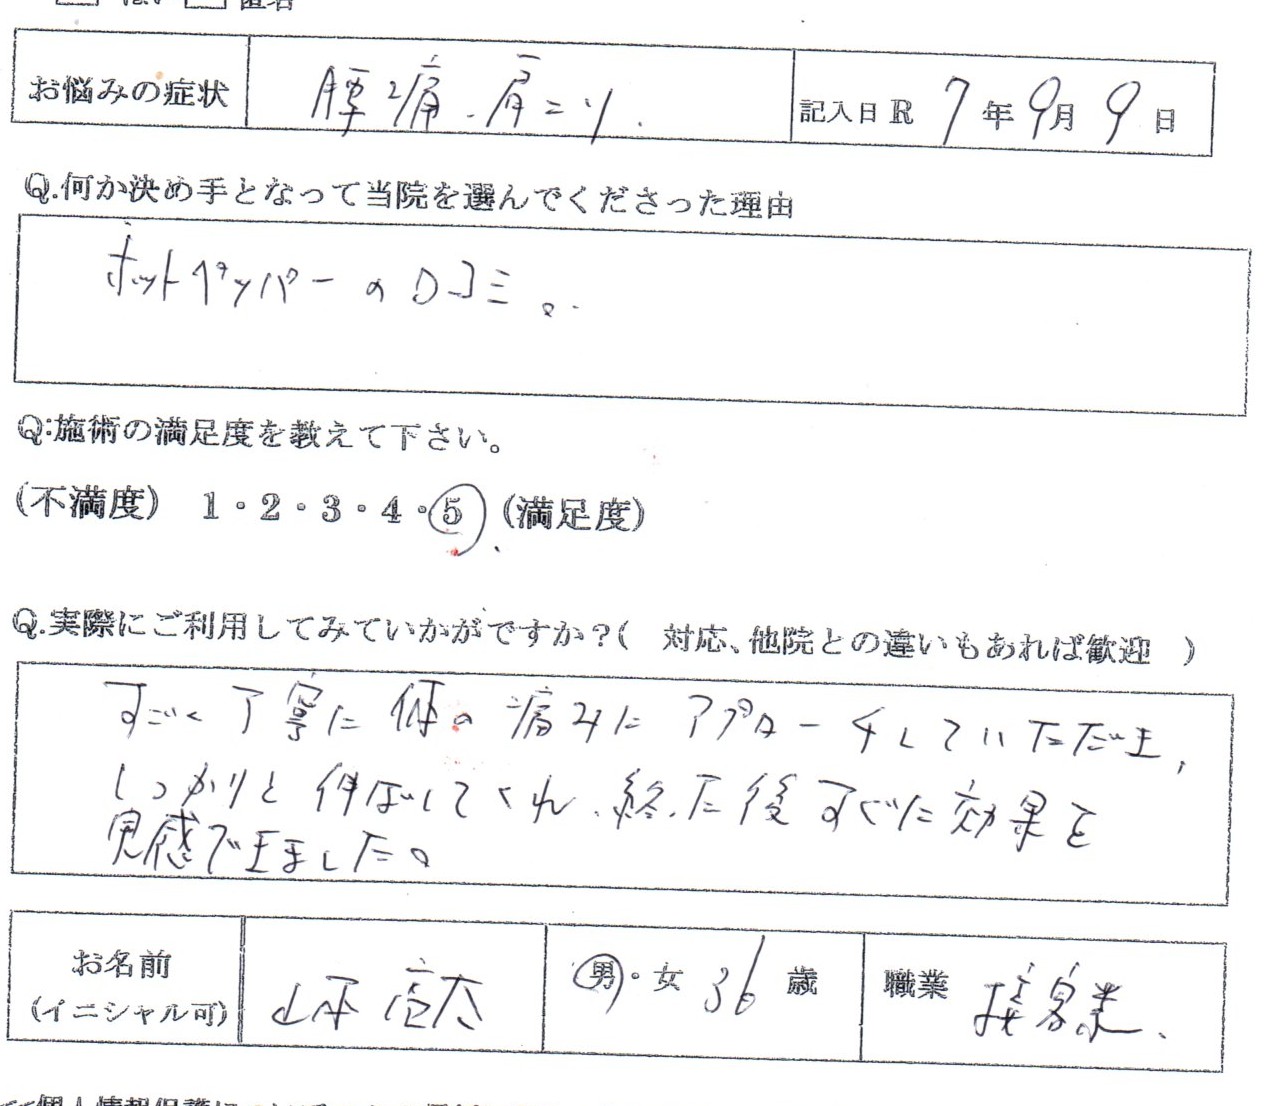 はい 匿名
お悩みの症状 腰痛、肩こり 記入日 R 7年9月9日
Q.何か決め手となって当院を選んでくださった理由
ホットペッパーの口コミ。
Q:施術の満足度を教えて下さい。
(不満度) 1・2・3・4・5 (満足度)
Q.実際にご利用してみていかがですか?( 対応、他院との違いもあれば歓迎 )
すごく丁寧に体の痛みにアプローチしていただき、
しっかりと伸ばしてくれ、終えた後すぐに効果を
実感できました。
お名前 山本 男・女 36歳 職業 接客業
(イニシャル可)